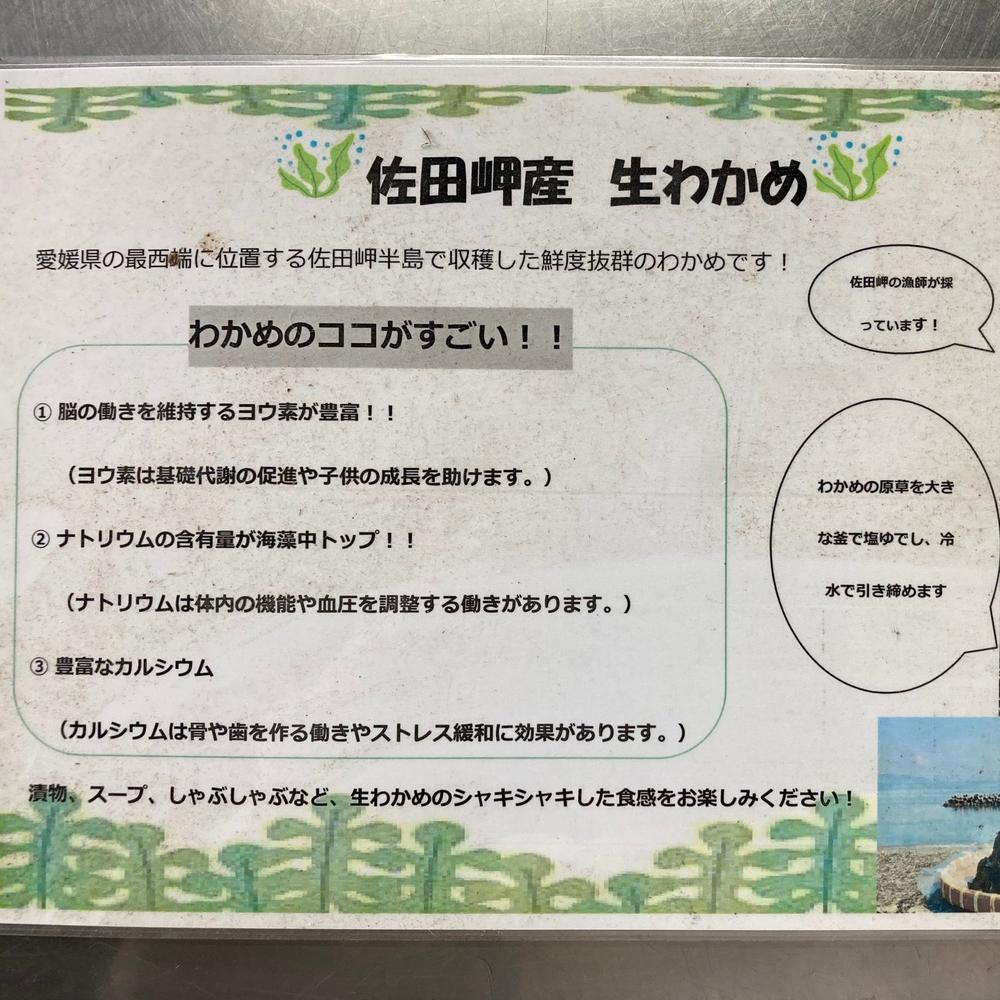 佐田岬産 生わかめ
愛媛県の最西端に位置する佐田岬半島で収穫した鮮度抜群のわかめです！
佐田岬の漁師が採
っています！
わかめのココがすごい！！
① 脳の働きを維持するヨウ素が豊富！！
（ヨウ素は基礎代謝の促進や子供の成長を助けます。）
② ナトリウムの含有量が海藻中トップ！！
（ナトリウムは体内の機能や血圧を調整する働きがあります。）
③ 豊富なカルシウム
（カルシウムは骨や歯を作る働きやストレス緩和に効果があります。）
わかめの原草を大き
な釜で塩ゆでし、冷
水で引き締めます
漬物、スープ、しゃぶしゃぶなど、生わかめのシャキシャキした食感をお楽しみください！